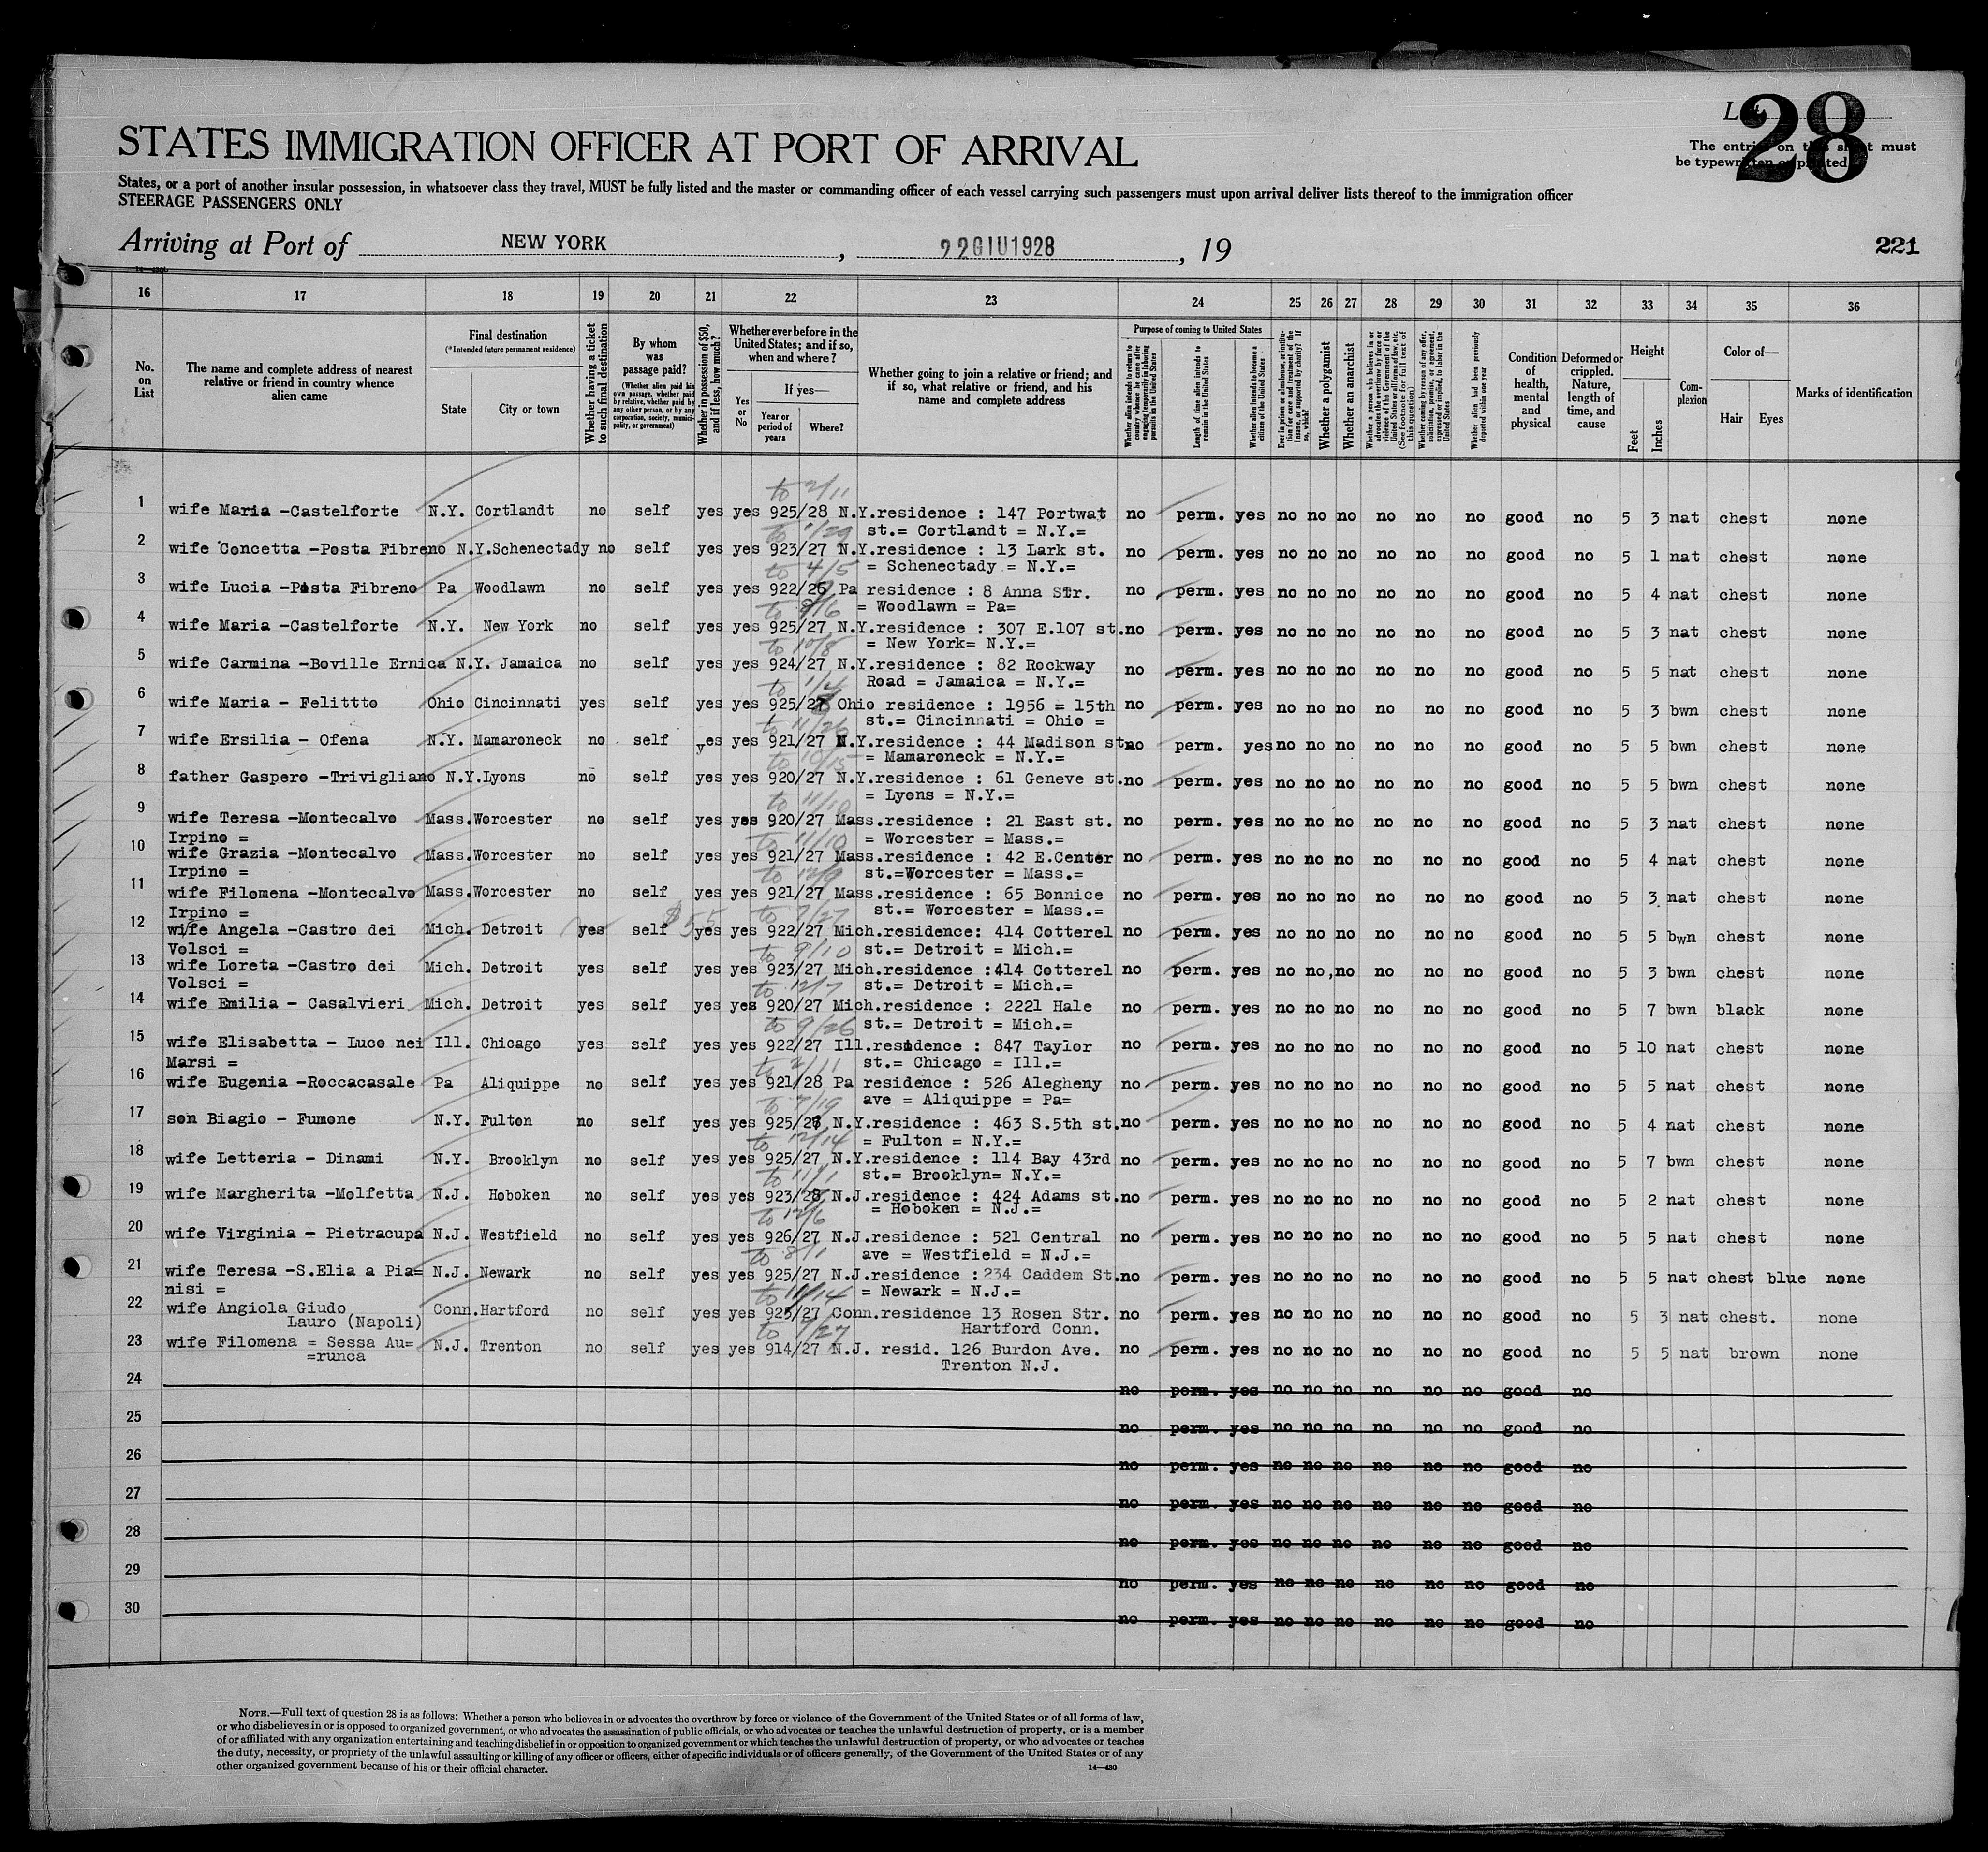 List 28
The entries on this sheet must
be typewritten or printed
STATES IMMIGRATION OFFICER AT PORT OF ARRIVAL
States, or a port of another insular possession, in whatsoever class they travel, MUST be fully listed and the master or commanding officer of each vessel carrying such passengers must upon arrival deliver lists thereof to the immigration officer
STEERAGE PASSENGERS ONLY
Arriving at Port of NEW YORK, 22GIU1928, 19
221
16 17 18 19 20 21 22 23 24 25 26 27 28 29 30 31 32 33 34 35 36
No. on List
The name and complete address of nearest relative or friend in country whence alien came
Final destination
(*Intended future permanent residence)
State
City or town
Whether having a ticket to such final destination
By whom was passage paid?
(Whether alien paid his own passage, whether paid by relative, whether paid by any other person, or by any corporation, society, municipality, or government)
Whether in possession of $50, and if less, how much?
Whether ever before in the United States; and if so, when and where?
Yes or No
If yes—
Year or period of years
Where?
Whether going to join a relative or friend; and if so, what relative or friend, and his name and complete address
Purpose of coming to United States
Whether alien intends to return to country whence he came after engaging temporarily in laboring pursuits in the United States
Length of time alien intends to remain in the United States
Whether alien intends to become a citizen of the United States
Ever in prison or almshouse, or institution for care and treatment of the insane, or supported by charity? If so, which?
Whether a polygamist
Whether an anarchist
Whether a person who believes in or advocates the overthrow by force or violence of the Government of the United States or all forms of law, etc. (See footnote for full text of this question)
Whether coming by reason of any offer, solicitation, promise, or agreement, expressed or implied, to labor in the United States
Whether alien had been previously deported within one year
Condition of health, mental and physical
Deformed or crippled. Nature, length of time, and cause
Height
Feet
Inches
Complexion
Color of—
Hair
Eyes
Marks of identification
to 2/11
1 wife Maria -Castelforte N.Y. Cortlandt no self yes yes 925/28 N.Y.residence : 147 Portwat no perm. yes no no no no no no good no 5 3 nat chest none
to 1/29 st.= Cortlandt = N.Y.=
2 wife Concetta -Posta Fibreno N.Y.Schenectady no self yes yes 923/27 N.Y.residence : 13 Lark st. no perm. yes no no no no no no good no 5 1 nat chest none
to 4/5 = Schenectady = N.Y.=
3 wife Lucia -Posta Fibreno Pa Woodlawn no self yes yes 922/26 Pa residence : 8 Anna STr. no perm. yes no no no no no no good no 5 4 nat chest none
to 8/6 = Woodlawn = Pa=
4 wife Maria -Castelforte N.Y. New York no self yes yes 925/27 N.Y.residence : 307 E.107 st.no perm. yes no no no no no no good no 5 3 nat chest none
to 10/8 = New York= N.Y.=
5 wife Carmina -Boville Ernica N.Y. Jamaica no self yes yes 924/27 N.Y.residence : 82 Rockway no perm. yes no no no no no no good no 5 5 nat chest none
to 1/4 Road = Jamaica = N.Y.=
6 wife Maria - Felittto Ohio Cincinnati yes self yes yes 925/27 Ohio residence : 1956 = 15th no perm. yes no no no no no no good no 5 3 bwn chest none
to 11/26 st.= Cincinnati = Ohio =
7 wife Ersilia - Ofena N.Y. Mamaroneck no self yes yes 921/27 N.Y.residence : 44 Madison st.no perm. yes no no no no no no good no 5 5 bwn chest none
to 10/15 = Mamaroneck = N.Y.=
8 father Gaspero -Trivigliano N.Y.Lyons no self yes yes 920/27 N.Y.residence : 61 Geneve st.no perm. yes no no no no no no good no 5 5 bwn chest none
to 11/10 = Lyons = N.Y.=
9 wife Teresa -Montecalvo Mass.Worcester no self yes yes 920/27 Mass.residence : 21 East st. no perm. yes no no no no no no good no 5 3 nat chest none
Irpino = to 11/10 = Worcester = Mass.=
10 wife Grazia -Montecalvo Mass.Worcester no self yes yes 921/27 Mass.residence : 42 E.Center no perm. yes no no no no no no good no 5 4 nat chest none
Irpino = to 12/9 st.=Worcester = Mass.=
11 wife Filomena -Montecalvo Mass.Worcester no self yes yes 921/27 Mass.residence : 65 Bonnice no perm. yes no no no no no no good no 5 3 nat chest none
Irpino = $55 to 7/27 st.= Worcester = Mass.=
12 wife Angela -Castro dei Mich. Detroit yes self yes yes 922/27 Mich.residence: 414 Cotterel no perm. yes no no no no no no good no 5 5 bwn chest none
Volsci = to 9/10 st.= Detroit = Mich.=
13 wife Loreta -Castro dei Mich. Detroit yes self yes yes 923/27 Mich.residence :414 Cotterel no perm. yes no no,no no no no good no 5 3 bwn chest none
Volsci = to 12/7 st.= Detroit = Mich.=
14 wife Emilia - Casalvieri Mich. Detroit yes self yes yes 920/27 Mich.residence : 2221 Hale no perm. yes no no no no no no good no 5 7 bwn black none
to 9/26 st.= Detroit = Mich.=
15 wife Elisabetta - Luco nei Ill. Chicago yes self yes yes 922/27 Ill.residence : 847 Taylor no perm. yes no no no no no no good no 5 10 nat chest none
Marsi = to 2/11 st.= Chicago = Ill.=
16 wife Eugenia -Roccacasale Pa Aliquippe no self yes yes 921/28 Pa residence : 526 Alegheny no perm. yes no no no no no no good no 5 5 nat chest none
to 7/19 ave = Aliquippe = Pa=
17 son Biagio - Fumone N.Y. Fulton no self yes yes 925/28 N.Y.residence : 463 S.5th st.no perm. yes no no no no no no good no 5 4 nat chest none
to 12/14 = Fulton = N.Y.=
18 wife Letteria - Dinami N.Y. Brooklyn no self yes yes 925/27 N.Y.residence : 114 Bay 43rd no perm. yes no no no no no no good no 5 7 bwn chest none
to 11/1 st.= Brooklyn= N.Y.=
19 wife Margherita -Molfetta N.J. Hoboken no self yes yes 923/28 N.J.residence : 424 Adams st.no perm. yes no no no no no no good no 5 2 nat chest none
to 12/6 = Hoboken = N.J.=
20 wife Virginia - Pietracupa N.J. Westfield no self yes yes 926/27 N.J.residence : 521 Central no perm. yes no no no no no no good no 5 5 nat chest none
to 8/1 ave = Westfield = N.J.=
21 wife Teresa -S.Elia a Pia= N.J. Newark no self yes yes 925/27 N.J.residence :234 Caddem St.no perm. yes no no no no no no good no 5 5 nat chest blue none
nisi = to 11/14 = Newark = N.J.=
22 wife Angiola Giudo Conn.Hartford no self yes yes 925/27 Conn.residence 13 Rosen Str. no perm. yes no no no no no no good no 5 3 nat chest. none
Lauro (Napoli) to 9/27 Hartford Conn.
23 wife Filomena = Sessa Au= N.J. Trenton no self yes yes 914/27 N.J. resid. 126 Burdon Ave. no perm. yes no no no no no no good no 5 5 nat brown none
=runca Trenton N.J.
24 no perm. yes no no no no no no good no
25 no perm. yes no no no no no no good no
26 no perm. yes no no no no no no good no
27 no perm. yes no no no no no no good no
28 no perm. yes no no no no no no good no
29 no perm. yes no no no no no no good no
30 no perm. yes no no no no no no good no
NOTE.—Full text of question 28 is as follows: Whether a person who believes in or advocates the overthrow by force or violence of the Government of the United States or of all forms of law,
or who disbelieves in or is opposed to organized government, or who advocates the assassination of public officials, or who advocates or teaches the unlawful destruction of property, or is a member
of or affiliated with any organization entertaining and teaching disbelief in or opposition to organized government or which teaches the unlawful destruction of property, or who advocates or teaches
the duty, necessity, or propriety of the unlawful assaulting or killing of any officer or officers, either of specific individuals or of officers generally, of the Government of the United States or of any
other organized government because of his or their official character.
14—430